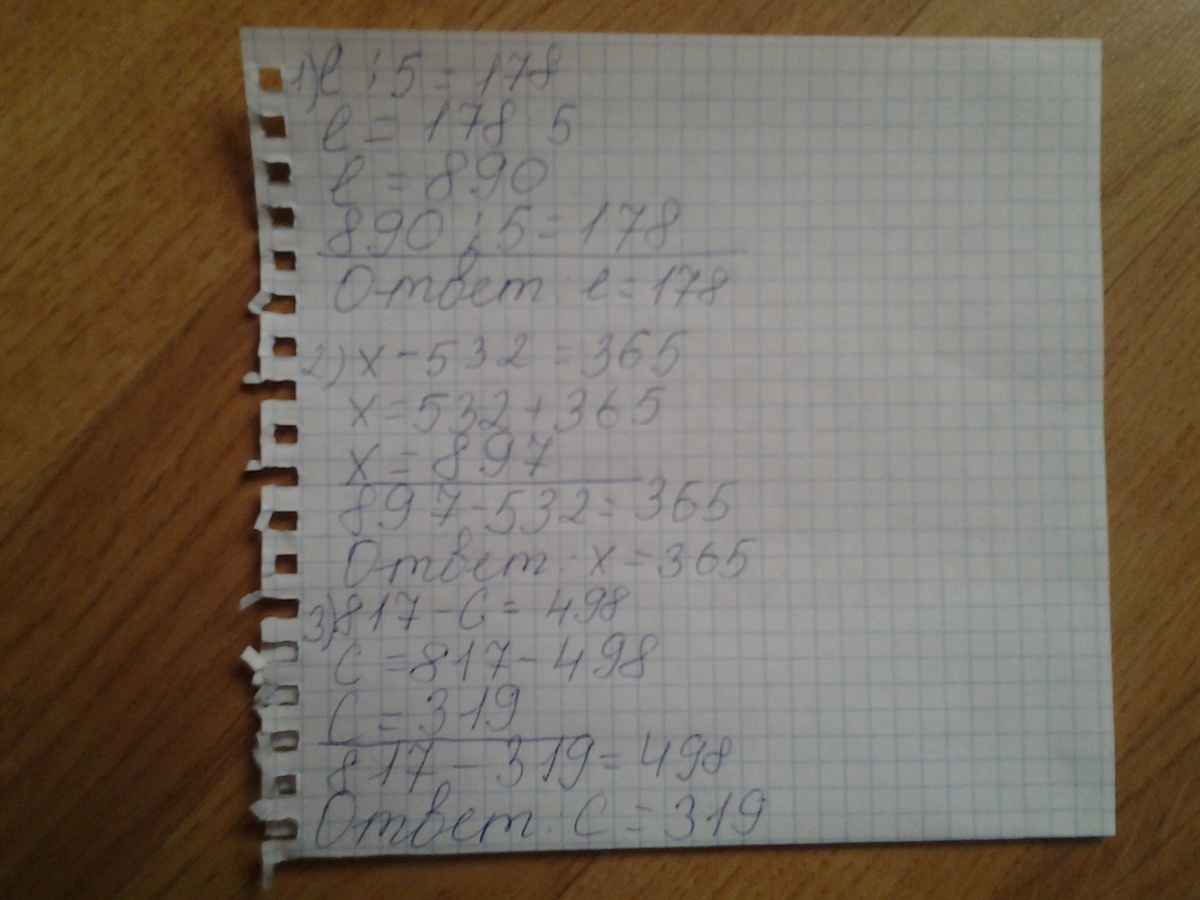 1) в : 5 = 178
в = 178 5
в = 890
890 : 5 = 178
Ответ: в = 178
2) х - 532 = 365
х = 532 + 365
х = 897
897 - 532 = 365
Ответ: х = 365
3) 817 - С = 498
С = 817 - 498
С = 319
817 - 319 = 498
Ответ: С = 319